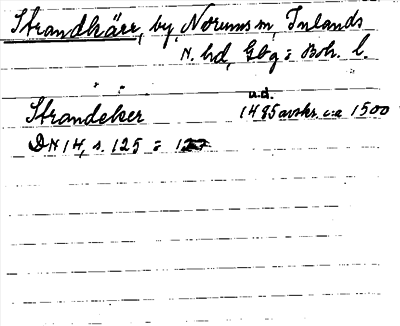 Strandkärr, by, Norums sn, Inlands
N. hd, Gbg: Boh. l.
u.d.
Strandeker 1485 avskr. c:a 1500
DN 14, s. 125 :